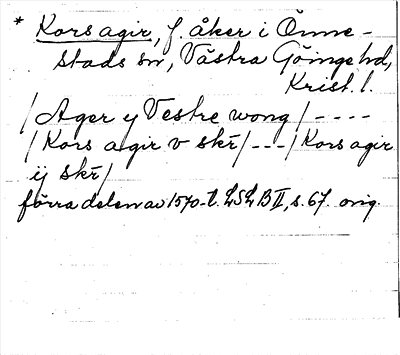 * Kors agir, f. åker i Önne-
stads sn, Västra Göinge hd,
Krist. l.
/Ager y Vestre wong/ ----
/Kors agir v skr/---/Kors agir
ij skr/
förra delen av 1570-t. LSLB II, s. 67. orig.